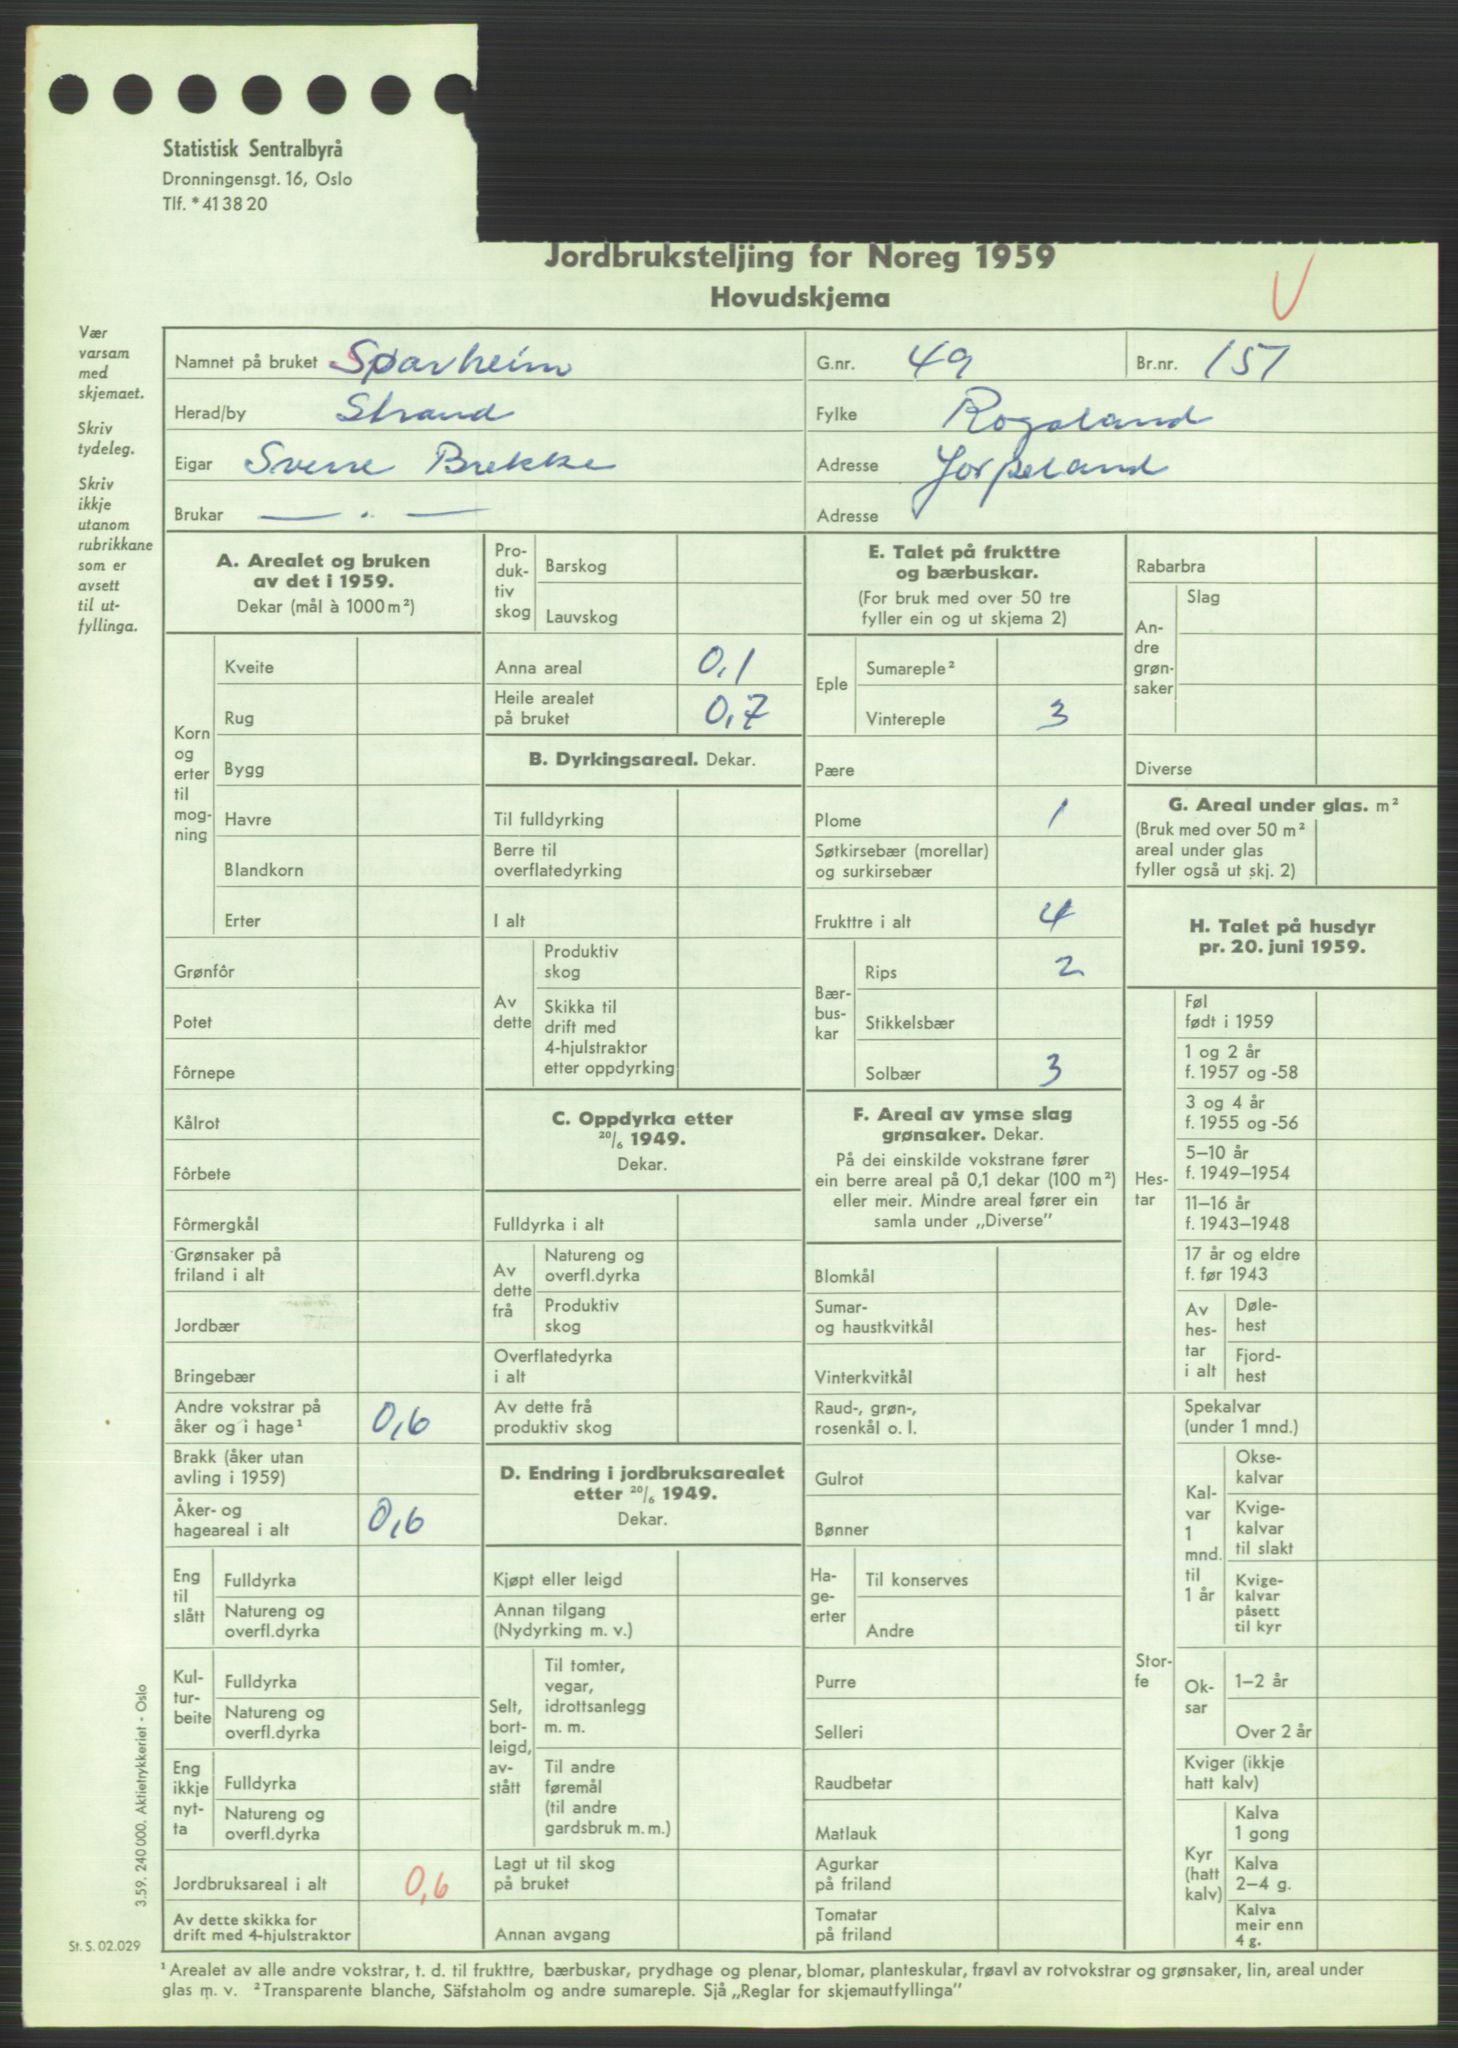 Statistisk Sentralbyrå
Dronningensgt. 16, Oslo
Tlf. * 41 38 20
Jordbruksteljing for Noreg 1959
Hovudskjema
V
Vær
varsam
med
skjemaet.
Skriv
tydeleg.
Skriv
ikkje
utanom
rubrikkane
som er
avsett
til ut-
fyllinga.
Namnet på bruket Sparheim G.nr. 49 Br.nr. 151
Herad/by Strand Fylke Rogaland
Eigar Sverre Brekke Adresse Jørpeland
Brukar — . — Adresse
A. Arealet og bruken
av det i 1959.
Dekar (mål à 1000 m²)
Korn
og
erter
til
mog-
ning
Kveite
Rug
Bygg
Havre
Blandkorn
Erter
Grønfôr
Potet
Fôrnepe
Kålrot
Fôrbete
Fôrmergkål
Grønsaker på
friland i alt
Jordbær
Bringebær
Andre vokstrar på
åker og i hage¹ 0,6
Brakk (åker utan
avling i 1959)
Åker- og
hageareal i alt 0,6
Eng
til
slått
Fulldyrka
Natureng og
overfl.dyrka
Kul-
tur-
beite
Fulldyrka
Natureng og
overfl.dyrka
Eng
ikkje
nyt-
ta
Fulldyrka
Natureng og
overfl.dyrka
Jordbruksareal i alt 0,6
Av dette skikka for
drift med 4-hjulstraktor
Pro-
duk-
tiv
skog
Barskog
Lauvskog
Anna areal 0,1
Heile arealet
på bruket 0,7
B. Dyrkingsareal. Dekar.
Til fulldyrking
Berre til
overflatedyrking
I alt
Av
dette
Produktiv
skog
Skikka til
drift med
4-hjulstraktor
etter oppdyrking
C. Oppdyrka etter
20/6 1949.
Dekar.
Fulldyrka i alt
Av
dette
frå
Natureng og
overfl.dyrka
Produktiv
skog
Overflatedyrka
i alt
Av dette frå
produktiv skog
D. Endring i jordbruksarealet
etter 20/6 1949.
Dekar.
Kjøpt eller leigd
Annan tilgang
(Nydyrking m. v.)
Selt,
bort-
leigd,
av-
stått
Til tomter,
vegar,
idrottsanlegg
m. m.
Til andre
føremål
(til andre
gardsbruk m. m.)
Lagt ut til skog
på bruket
Annan avgang
E. Talet på frukttre
og bærbuskar.
(For bruk med over 50 tre
fyller ein og ut skjema 2)
Eple
Sumareple²
Vintereple 3
Pære
Plome 1
Søtkirsebær (morellar)
og surkirsebær
Frukttre i alt 4
Bær-
bus-
kar
Rips 2
Stikkelsbær
Solbær 3
F. Areal av ymse slag
grønsaker. Dekar.
På dei einskilde vokstrane fører
ein berre areal på 0,1 dekar (100 m²)
eller meir. Mindre areal fører ein
samla under „Diverse”
Blomkål
Sumar-
og haustkvitkål
Vinterkvitkål
Raud-, grøn-,
rosenkål o. l.
Gulrot
Bønner
Ha-
ge-
erter
Til konserves
Andre
Purre
Selleri
Raudbetar
Matlauk
Agurkar
på friland
Tomatar
på friland
Rabarbra
An-
dre
grøn-
saker
Slag
Diverse
G. Areal under glas. m²
(Bruk med over 50 m²
areal under glas
fyller også ut skj. 2)
H. Talet på husdyr
pr. 20. juni 1959.
Hes-
tar
Føl
født i 1959
1 og 2 år
f. 1957 og -58
3 og 4 år
f. 1955 og -56
5–10 år
f. 1949–1954
11–16 år
f. 1943–1948
17 år og eldre
f. før 1943
Av
hes-
tar
i alt
Døle-
hest
Fjord-
hest
Stor-
fe
Spekalvar
(under 1 mnd.)
Kal-
var
1
mnd.
til
1 år
Okse-
kalvar
Kvige-
kalvar
til slakt
Kvige-
kalvar
påsett
til kyr
Ok-
sar
1–2 år
Over 2 år
Kviger (ikkje
hatt kalv)
Kyr
(hatt
kalv)
Kalva
1 gong
Kalva
2–4 g.
Kalva
meir enn
4 g.
3.59. 240 000. Aktietrykkeriet - Oslo
St. S. 02.029
¹ Arealet av alle andre vokstrar, t. d. til frukttre, bærbuskar, prydhage og plenar, blomar, planteskular, frøavl av rotvokstrar og grønsaker, lin, areal under
glas m. v. ² Transparente blanche, Säfstaholm og andre sumareple. Sjå „Reglar for skjemautfyllinga”